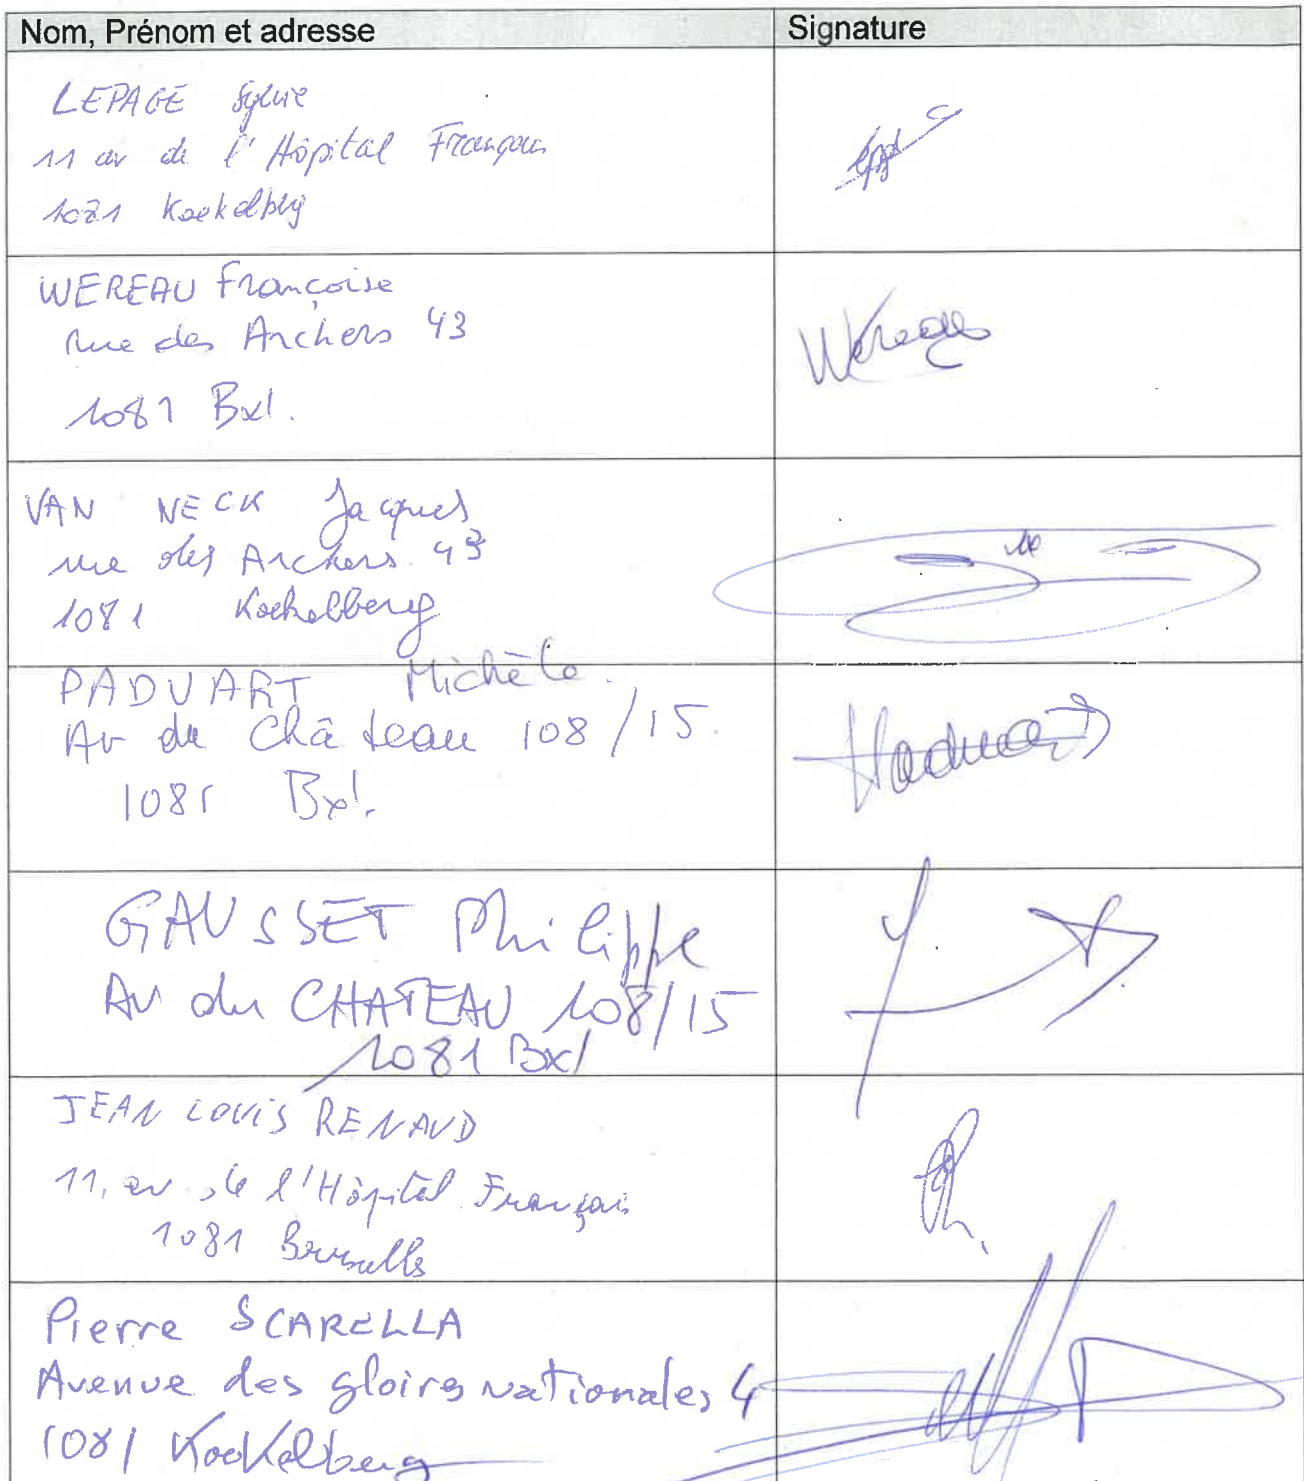 Nom, Prénom et adresse
Signature
LEPAGE Sylvie
11 av de l'Hôpital Français
1081 Koekelberg
WEREAU Françoise
rue des Archers 43
1081 Bxl.
Wereau
VAN NECK Jacques
rue des Archers 43
1081 Koekelberg
PADUART Michèle
Av du Château 108/15
1081 Bxl.
Paduart
GAUSSET Philippe
Av du CHATEAU 108/15
1081 Bxl
JEAN LOUIS RENAUD
11, av de l'Hôpital Français
1081 Bruxelles
Pierre SCARELLA
Avenue des gloires nationales 4
1081 Koekelberg